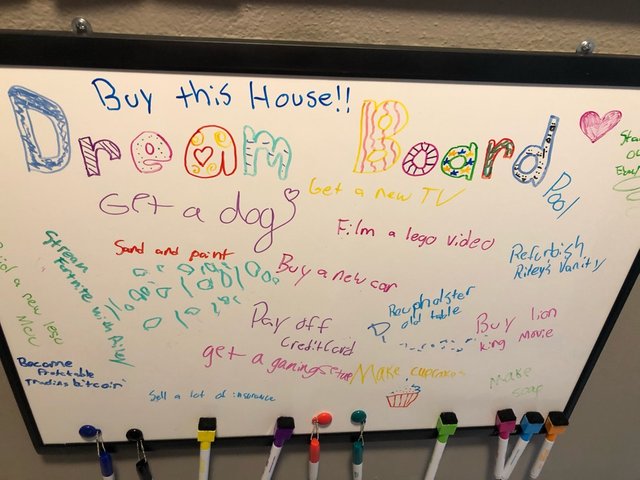 Buy this House!!
Dream Board
Get a new TV
Pool
Get a dog
Film a lego video
Refurbish
Riley's Vanity
Stream
Fortnite with Riley
Sand and paint
Buy a new car
a new lego
Reupholster
old table
Buy lion
king movie
Pay off
Credit Card
get a gaming setup
Make cupcakes
Make
soap
Become
Profitable
Trading bitcoin
Sell a lot of insurance